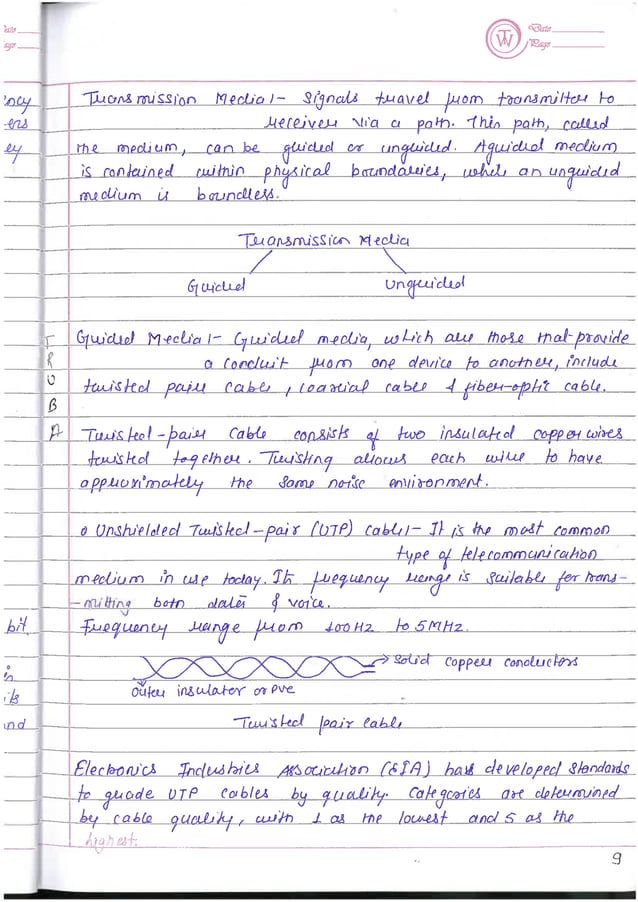 Date
Page
TW
Date
Page
ency
ers
ey
Transmission Media:- Signals travel from transmitter to
receiver via a path. This path, called
the medium, can be guided or unguided. A guided medium
is contained within physical boundaries, while an unguided
medium is boundless.
Transmission Media
Guided Unguided
Guided Media:- Guided media, which are those that provide
a conduit from one device to another, include
twisted pair cable, coaxial cable & fiber-optic cable.
T
R
U
B
A
Twisted-pair cable consists of two insulated copper wires
twisted together. Twisting allows each wire to have
approximately the same noise environment.
o Unshielded Twisted-pair (UTP) cable:- It is the most common
type of telecommunication
medium in use today. Its frequency range is suitable for trans-
-mitting both data & voice.
bit.
Frequency range from 100HZ to 5MHZ.
→ solid copper conductors
in
its
outer insulator or PVC
and
Twisted pair cable
Electronics Industries Association (EIA) has developed standards
to grade UTP cables by quality. Categories are determined
by cable quality, with 1 as the lowest and 5 as the
highest.
9